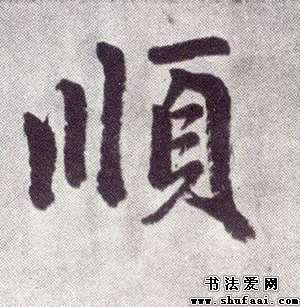 順
书法爱网
www.shufaai.com